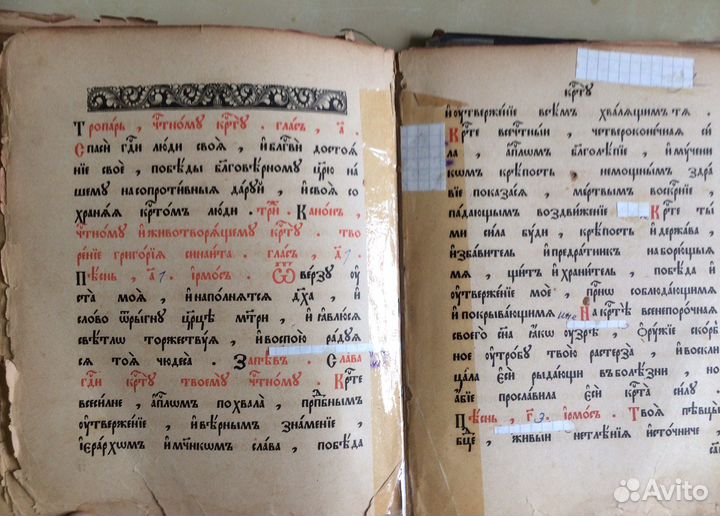 Тропарь , чⷭ҇тному крⷭ҇ту . гласъ , а҃ .
Спаси гдⷭ҇и люди своя , и҆ блгⷭ҇ви достоя
нїе своѐ , побѣды благовѣрному цр҃ю на
шему на сопротивныя даруй , и҆ своя со
храняя крⷭ҇томъ люди . трⷭ҇и . Канонъ ,
чⷭ҇тному и҆ животворящему крⷭ҇ту . тво
ренїе григорїя синаита . гласъ , д҃ .
Пѣснь , а҃ . і҆рмосъ . Ѿверзу оу҆
ста моя , и҆ наполнятся дх҃а , и҆
слово ѿрыгну цр҃цѣ мт҃ри , и҆ ꙗ҆влюся
свѣтло торжествуя , и҆ воспою радуя
ся тоя чюдеса . Запѣвъ . Слава
гдⷭ҇и крⷭ҇ту твоему чⷭ҇тному . Крⷭ҇те
всесилне , апⷭ҇ломъ похвала , прпⷣбнымъ
оу҆твержденїе , и҆ вѣрнымъ знаменїе ,
і҆ерархомъ и҆ мч҃нкомъ слава , побѣда
крⷭ҇ту
и҆ оу҆твержденїе всѣмъ хвалящимъ тя .
Крⷭ҇те всечтⷭ҇ныи , четвероконечная си
ла , апⷭ҇ломъ благолѣпїе , и҆ мучени
комъ крѣпость немощнымъ здра
вїе показася , мертвымъ воскрнⷭ҇їе ,
падающымъ воздвиженїе Крⷭ҇те ты
ми сила буди , крѣпость и҆ держава ,
и҆збавитель и҆ предратникъ на борющыя
мя , щитъ и҆ хранитель , побѣда и҆
оу҆твержденїе мое , прⷭ҇нѡ соблюдающимъ
и҆ покрывающимъ На крⷭ҇тѣ всенепорочная
своего сн҃а ꙗ҆ко оу҆зрѣ , ѻ҆ружїе скорб
ное оу҆тробу твою растерза , и҆ восклик
цала є҆сѝ рыдающи въ болѣзни , но
а҆бїе прославила є҆сѝ крⷭ҇та силу
Пѣснь , г҃ . і҆рмосъ . Твоя пѣвцы
бцⷣе , живыи нетлѣнїя и҆сточниче ,
Avito